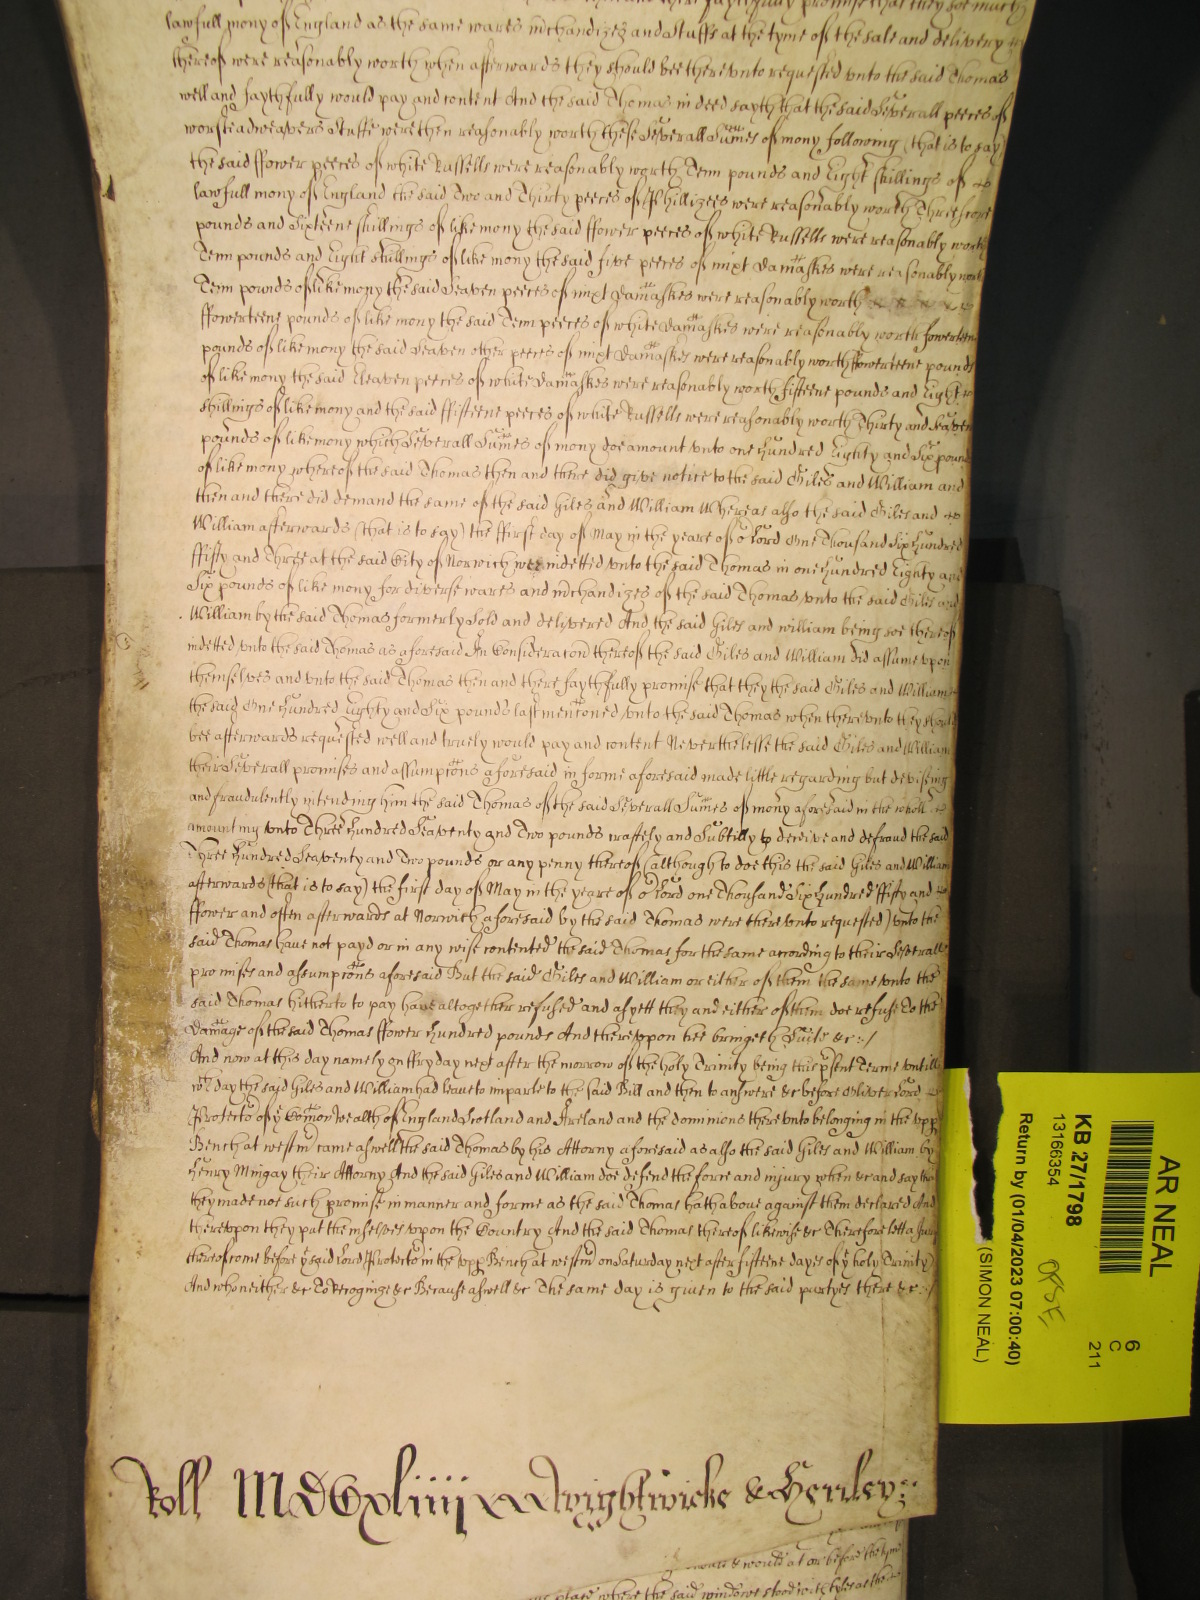 promise that they soe much
lawfull mony of England as the same wares m̃chandizes and stuffs at the tyme of the sale and delivery
thereof were reasonably worth when afterwards they should bee therevnto requested vnto the said Thomas
well and faythfully would pay and content And the said Thomas in deed sayth that the said Severall peeces of
worsteadweavers stuffe were then reasonably worth these Severall Sum̃es of mony following (that is to say)
the said ffower peeces of white Russells were reasonably worth Tenn pounds and Eight shillings of
lawfull mony of England the said Two and Thirty peeces of Phillizees were reasonably worth Threescore
pounds and Sixteene shillings of like mony the said ffower peeces of white Russells were reasonably worth
Tenn pounds and Eight shillings of like mony the said five peeces of mixt Dam̃askes were reasonably worth
Tenn pounds of like mony the said Seaven peeces of mixt Dam̃askes were reasonably worth
ffowerteene pounds of like mony the said Tenn peeces of white Dam̃askes were reasonably worth fowerteene
pounds of like mony the said Seaven other peeces of mixt Dam̃askes were reasonably worth ffowerteene pounds
of like mony the said Eleaven peeces of white Dam̃askes were reasonably worth fifteene pounds and Eight
shillings of like mony and the said ffifteene peeces of white Russells were reasonably worth Thirty and Seaven
pounds of like mony which Severall Sum̃es of mony doe amount vnto one hundred Eighty and Six pounds
of like mony whereof the said Thomas then and there did give notice to the said Giles and William and
then and there did demand the same of the said Giles and William Whereas also the said Giles and
William afterwards (that is to say) the ffirst day of May in the yeare of oʳ Lord One Thousand Six hundred
ffifty and Three at the said City of Norwich were indetted vnto the said Thomas in one hundred Eighty and
Six pounds of like mony for diverse wares and m̃chandizes of the said Thomas vnto the said Giles and
William by the said Thomas formerly Sold and delivered And the said Giles and william being soe thereof
indetted vnto the said Thomas as aforesaid In Considerac̃on thereof the said Giles and William did assume vpon
themselves and vnto the said Thomas then and there faythfully promise that they the said Giles and William
the said One hundred Eighty and Six pounds last menc̃oned vnto the said Thomas when therevnto they should
bee afterwards requested well and truely would pay and content Neverthelesse the said Giles and William
their Severall promises and assumpc̃ons aforesaid in forme aforesaid made little regarding but devising
and fraudulently intending him the said Thomas of the said Severall Sum̃es of mony aforesaid in the wholl
amounting vnto Three hundred Seaventy and Two pounds craftely and Subtilly to deceive and defraud the said
Three hundred Seaventy and Two pounds or any penny thereof (although to doe this the said Giles and William
afterwards (that is to say) the first day of May in the yeare of oʳ Lord one Thousand Six hundred ffifty and
ffower and often afterwards at Norwich aforesaid by the said Thomas were therevnto requested) vnto the
said Thomas have not payd or in any wise contented the said Thomas for the same according to their Severall
promises and assumpc̃ons aforesaid But the said Giles and William or either of them the same vnto the
said Thomas hitherto to pay have altogether refused and as yett they and either of them doe refuse To the
Damage of the said Thomas ffower hundred pounds And therevpon hee bringeth Suite &c:/
And now at this day namely on ffryday next after the morrow of the holy Trinity being this p̃sent Terme vntill
wᶜʰ day the said Giles and William had leave to imparle to the said Bill and then to answere &c before Oliver Lord
Protectoʳ of yᵉ Com̃on Wealth of England Scotland and Ireland and the dominions therevnto belonging in the vpp̃
Bench at westm̃ came aswell the said Thomas by his Attorny aforesaid as also the said Giles and William by
Henry Mingay their Attorny And the said Giles and William doe defend the force and injury when &c and say that
they made noe such promise in manner and forme as the said Thomas hath above against them declared And
therevpon they put themselves vpon the Country And the said Thomas thereof likewise &c Therefore lett a Jury
thereof come before yᵉ said Lord Protectoʳ in the vpp̃ Bench at westm̃ on Saturday next after fifteene dayes of yᵉ holy Trinity
And who neither &c To Recognize &c Because aswell &c The same day is given to the said partyes there &c:/
Roll MDCxliiij Wightwicke & Henley
would at or before the tyme
place where the said windowes stood with tyles at the
AR NEAL
KB 27/1798
13166354
Return by (01/04/2023 07:00:40)
(SIMON NEAL)
6
C
211